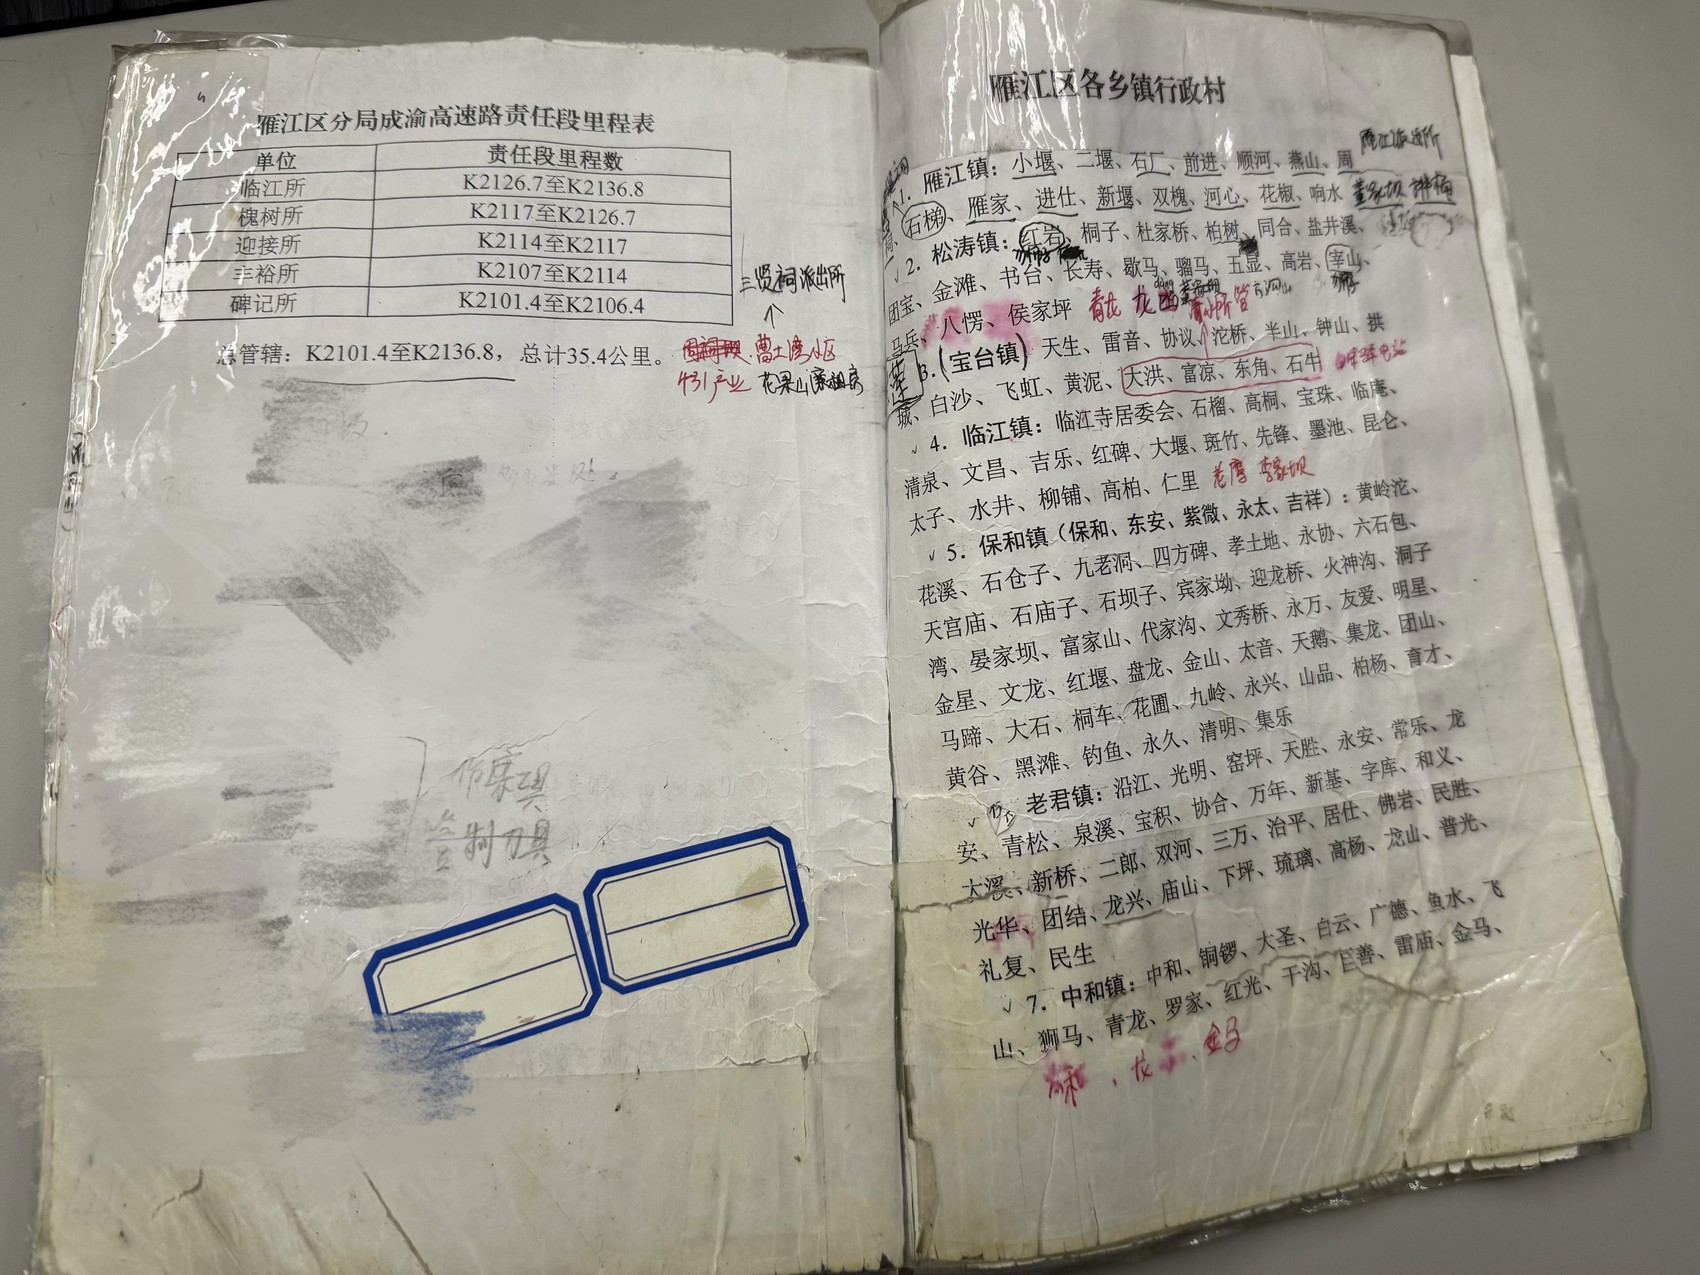 雁江区分局成渝高速路责任段里程表
单位 责任段里程数
临江所 K2126.7至K2136.8
槐树所 K2117至K2126.7
迎接所 K2114至K2117
丰裕所 K2107至K2114
碑记所 K2101.4至K2106.4
总管辖：K2101.4至K2136.8，总计35.4公里。
三贤祠派出所
曹土湾小区
431产业 花果山
管制刀具
雁江区各乡镇行政村
雁江派出所
1. 雁江镇：小堰、二堰、石厂、前进、顺河、燕山、周
石梯、雁家、进仕、新堰、双槐、河心、花椒、响水 董家坝
√2. 松涛镇：红岩、桐子、杜家桥、柏树、同合、盐井溪、
团宝、金滩、书台、长寿、歇马、骝马、五显、高岩、宰山、
马兵、八愣、侯家坪 青龙
3.(宝台镇) 天生、雷音、协议、沱桥、半山、钟山、拱
城、白沙、飞虹、黄泥、大洪、富凉、东角、石牛
√4. 临江镇：临江寺居委会、石榴、高桐、宝珠、临庵、
清泉、文昌、吉乐、红碑、大堰、斑竹、先锋、墨池、昆仑、
太子、水井、柳铺、高柏、仁里 李家坝
√5. 保和镇（保和、东安、紫微、永太、吉祥）：黄岭沱、
花溪、石仓子、九老洞、四方碑、孝土地、永协、六石包、
天宫庙、石庙子、石坝子、宾家坳、迎龙桥、火神沟、洞子
湾、晏家坝、富家山、代家沟、文秀桥、永万、友爱、明星、
金星、文龙、红堰、盘龙、金山、太音、天鹅、集龙、团山、
马蹄、大石、桐车、花圃、九岭、永兴、山品、柏杨、育才、
黄谷、黑滩、钓鱼、永久、清明、集乐
√ 老君镇：沿江、光明、窑坪、天胜、永安、常乐、龙
安、青松、泉溪、宝积、协合、万年、新基、字库、和义、
大溪、新桥、二郎、双河、三万、治平、居仕、佛岩、民胜、
光华、团结、龙兴、庙山、下坪、琉璃、高杨、龙山、普光、
礼复、民生
√7. 中和镇：中和、铜锣、大圣、白云、广德、鱼水、飞
山、狮马、青龙、罗家、红光、干沟、巨善、雷庙、金马、
金马